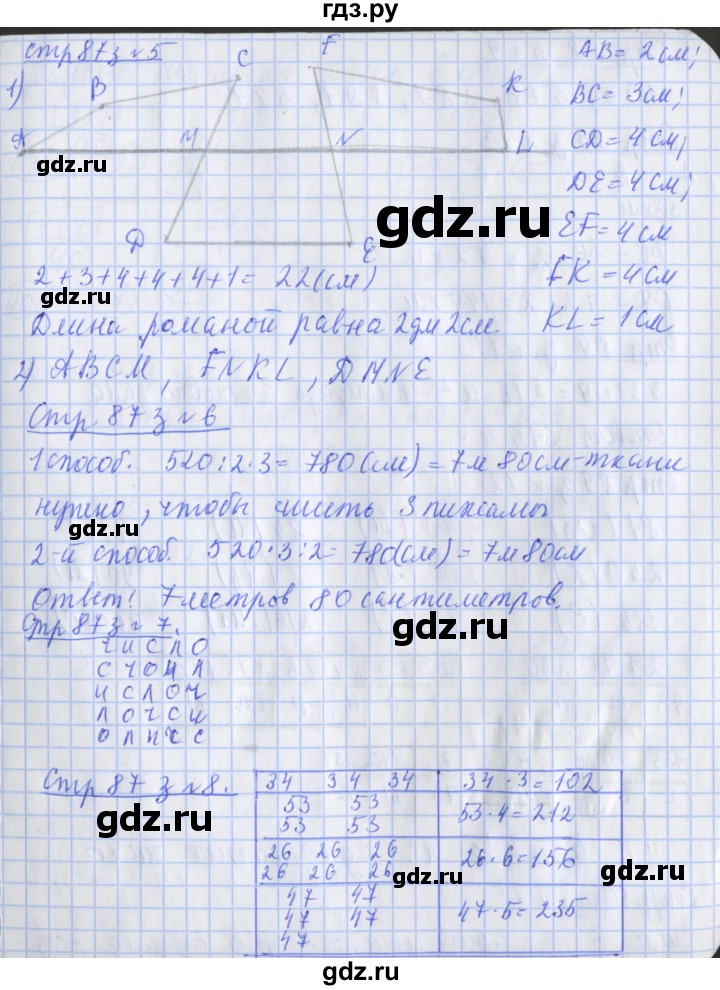 гдз.ру
стр 87 з № 5
1)
A B C M D F N E K L
AB = 2 см;
BC = 3 см;
CD = 4 см;
DE = 4 см;
EF = 4 см
FK = 4 см
KL = 1 см
2+3+4+4+4+1= 22(см)
Длина ломаной равна 2дм 2см
2) ABCM, FNKL, DMNE
Стр 87 з № 6
1 способ. 520:2·3= 780(см) = 7м 80см-ткани
нужно, чтобы сшить 3 пижамы
2-й способ. 520·3:2= 780(см) = 7м 80см
Ответ! 7 метров 80 сантиметров.
Стр 87 з № 7.
Ч И С Л О
С Ч О И Л
И С Л О Ч
Л О Ч С И
О Л И Ч С
Стр 87 з № 8.
34 34 34 34·3=102
53 53
53 53 53·4=212
26 26 26
26 26 26 26·6=156
47 47
47 47
47 47·5=235
gdz.ru
gdz.ru
gdz.ru
gdz.ru
gdz.ru
gdz.ru
gdz.ru
gdz.ru
gdz.ru
gdz.ru
gdz.ru